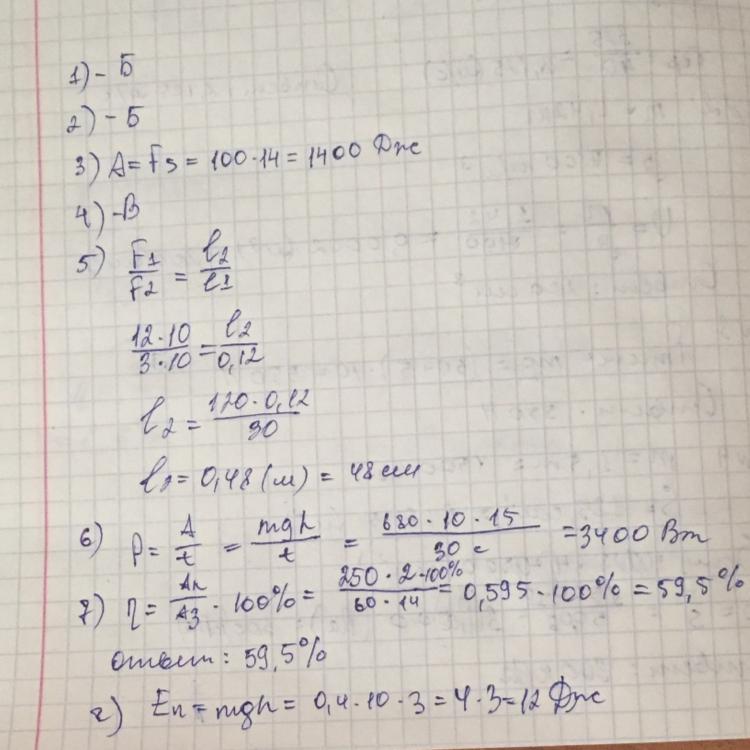 1) - Б
2) - Б
3) A = Fs = 100·14 = 1400 Дж
4) - В
5) F1/F2 = l2/l1
12·10/3·10 = l2/0,12
l2 = 120·0,12/30
l2 = 0,48 (м) = 48 см
6) P = A/t = mgh/t = 680·10·15/30 с = 3400 Вт
7) η = Aп/Aз · 100% = 250·2·100%/60·14 = 0,595·100% = 59,5%
ответ: 59,5%
г) Eп = mgh = 0,4·10·3 = 4·3 = 12 Дж